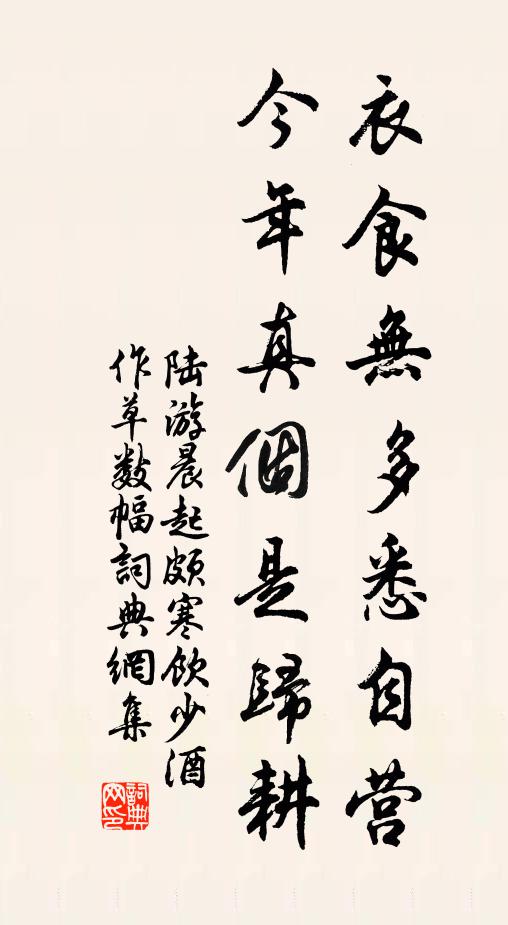 衣食無多悉自营
今年真個是歸耕
陆游晨起頗寒飲少酒
作草数幅詞典網集
詞典
网印